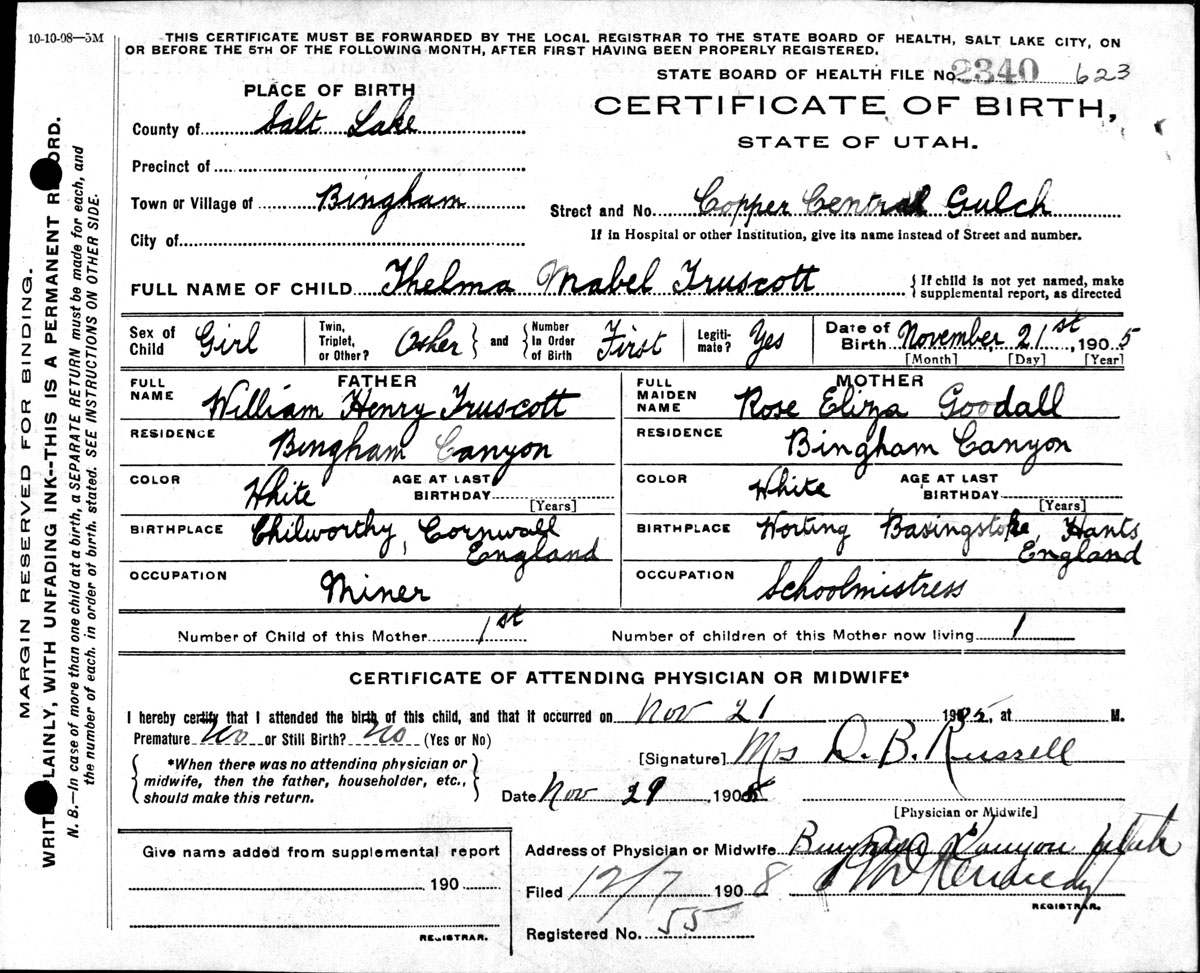 10-10-98—5M
THIS CERTIFICATE MUST BE FORWARDED BY THE LOCAL REGISTRAR TO THE STATE BOARD OF HEALTH, SALT LAKE CITY, ON
OR BEFORE THE 5TH OF THE FOLLOWING MONTH, AFTER FIRST HAVING BEEN PROPERLY REGISTERED.
STATE BOARD OF HEALTH FILE No. 2340 623
PLACE OF BIRTH
CERTIFICATE OF BIRTH,
STATE OF UTAH.
County of Salt Lake
Precinct of
Town or Village of Bingham
Street and No. Copper Central Gulch
City of
If in Hospital or other Institution, give its name instead of Street and number.
FULL NAME OF CHILD Thelma Mabel Truscott { If child is not yet named, make
supplemental report, as directed
Sex of Child Girl Twin, Triplet, or Other? Other and Number In Order of Birth First Legiti-mate? Yes Date of Birth November 21st, 1905
[Month] [Day] [Year]
FATHER MOTHER
FULL NAME William Henry Truscott FULL MAIDEN NAME Rose Eliza Goodall
RESIDENCE Bingham Canyon RESIDENCE Bingham Canyon
COLOR White AGE AT LAST BIRTHDAY [Years] COLOR White AGE AT LAST BIRTHDAY [Years]
BIRTHPLACE Chilworthy, Cornwall England BIRTHPLACE Worting Basingstoke, Hants England
OCCUPATION Miner OCCUPATION Schoolmistress
Number of Child of this Mother 1st Number of children of this Mother now living 1
CERTIFICATE OF ATTENDING PHYSICIAN OR MIDWIFE*
I hereby certify that I attended the birth of this child, and that it occurred on Nov 21 1905, at M.
Premature No or Still Birth? No (Yes or No)
[Signature] Mrs D. B. Russell
*When there was no attending physician or
midwife, then the father, householder, etc.,
should make this return.
Date Nov 29 1908
[Physician or Midwife]
Give name added from supplemental report
190
REGISTRAR.
Address of Physician or Midwife Bingham Canyon Utah
Filed 12/7 1908 Kennedy
REGISTRAR.
Registered No. 55
MARGIN RESERVED FOR BINDING.
WRITE PLAINLY, WITH UNFADING INK--THIS IS A PERMANENT RECORD.
N. B.—In case of more than one child at a birth, a SEPARATE RETURN must be made for each, and
the number of each, in order of birth, stated. SEE INSTRUCTIONS ON OTHER SIDE.